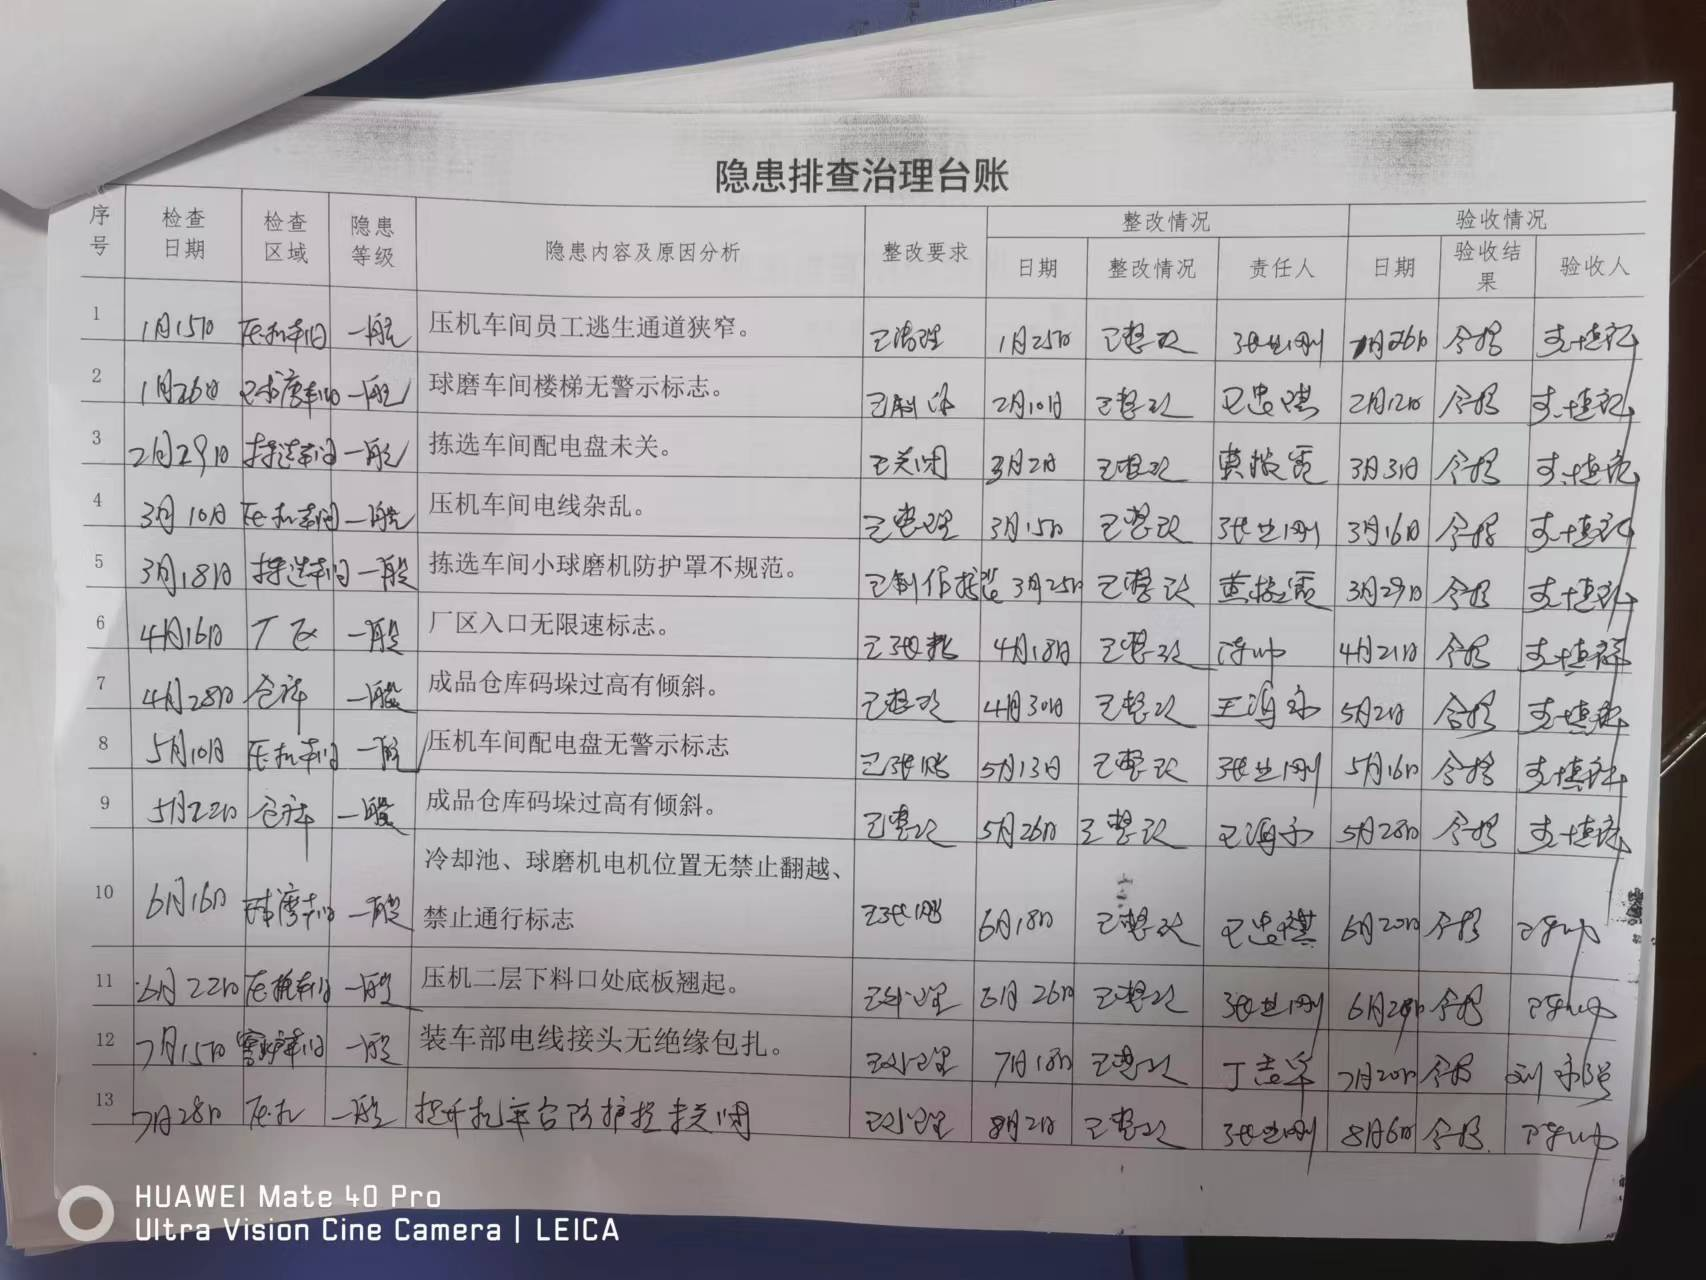 隐患排查治理台账
序号 检查日期 检查区域 隐患等级 隐患内容及原因分析 整改要求 整改情况 验收情况
日期 整改情况 责任人 日期 验收结果 验收人
1 1月15日 压机车间 一般 压机车间员工逃生通道狭窄。 已清理 1月25日 已整改 张世刚 1月26日 合格
2 1月26日 球磨车间 一般 球磨车间楼梯无警示标志。 已制作 2月10日 已整改 2月12日 合格
3 2月29日 拣选车间 一般 拣选车间配电盘未关。 已关闭 3月2日 已整改 3月3日 合格
4 3月10日 压机车间 一般 压机车间电线杂乱。 已整理 3月15日 已整改 张世刚 3月16日 合格
5 3月18日 拣选车间 一般 拣选车间小球磨机防护罩不规范。 已制作 3月25日 已整改 3月29日 合格
6 4月16日 厂区 一般 厂区入口无限速标志。 4月18日 已整改 陈帅 4月21日 合格
7 4月28日 仓库 一般 成品仓库码垛过高有倾斜。 已整改 4月30日 已整改 5月2日 合格
8 5月10日 压机车间 一般 压机车间配电盘无警示标志 已张贴 5月13日 已整改 张世刚 5月16日 合格
9 5月22日 仓库 一般 成品仓库码垛过高有倾斜。 已整改 5月26日 已整改 5月28日 合格
冷却池、球磨机电机位置无禁止翻越、
10 6月16日 球磨车间 一般 禁止通行标志 已张贴 6月18日 已整改 6月20日 合格
11 6月22日 压机车间 一般 压机二层下料口处底板翘起。 已处理 6月26日 已整改 张世刚 6月28日 合格
12 7月15日 窑炉车间 一般 装车部电线接头无绝缘包扎。 已处理 7月18日 已整改 7月20日 合格
13 7月28日 压机 一般 防护 未关闭 已处理 8月2日 已整改 张世刚 8月6日 合格
HUAWEI Mate 40 Pro
Ultra Vision Cine Camera | LEICA